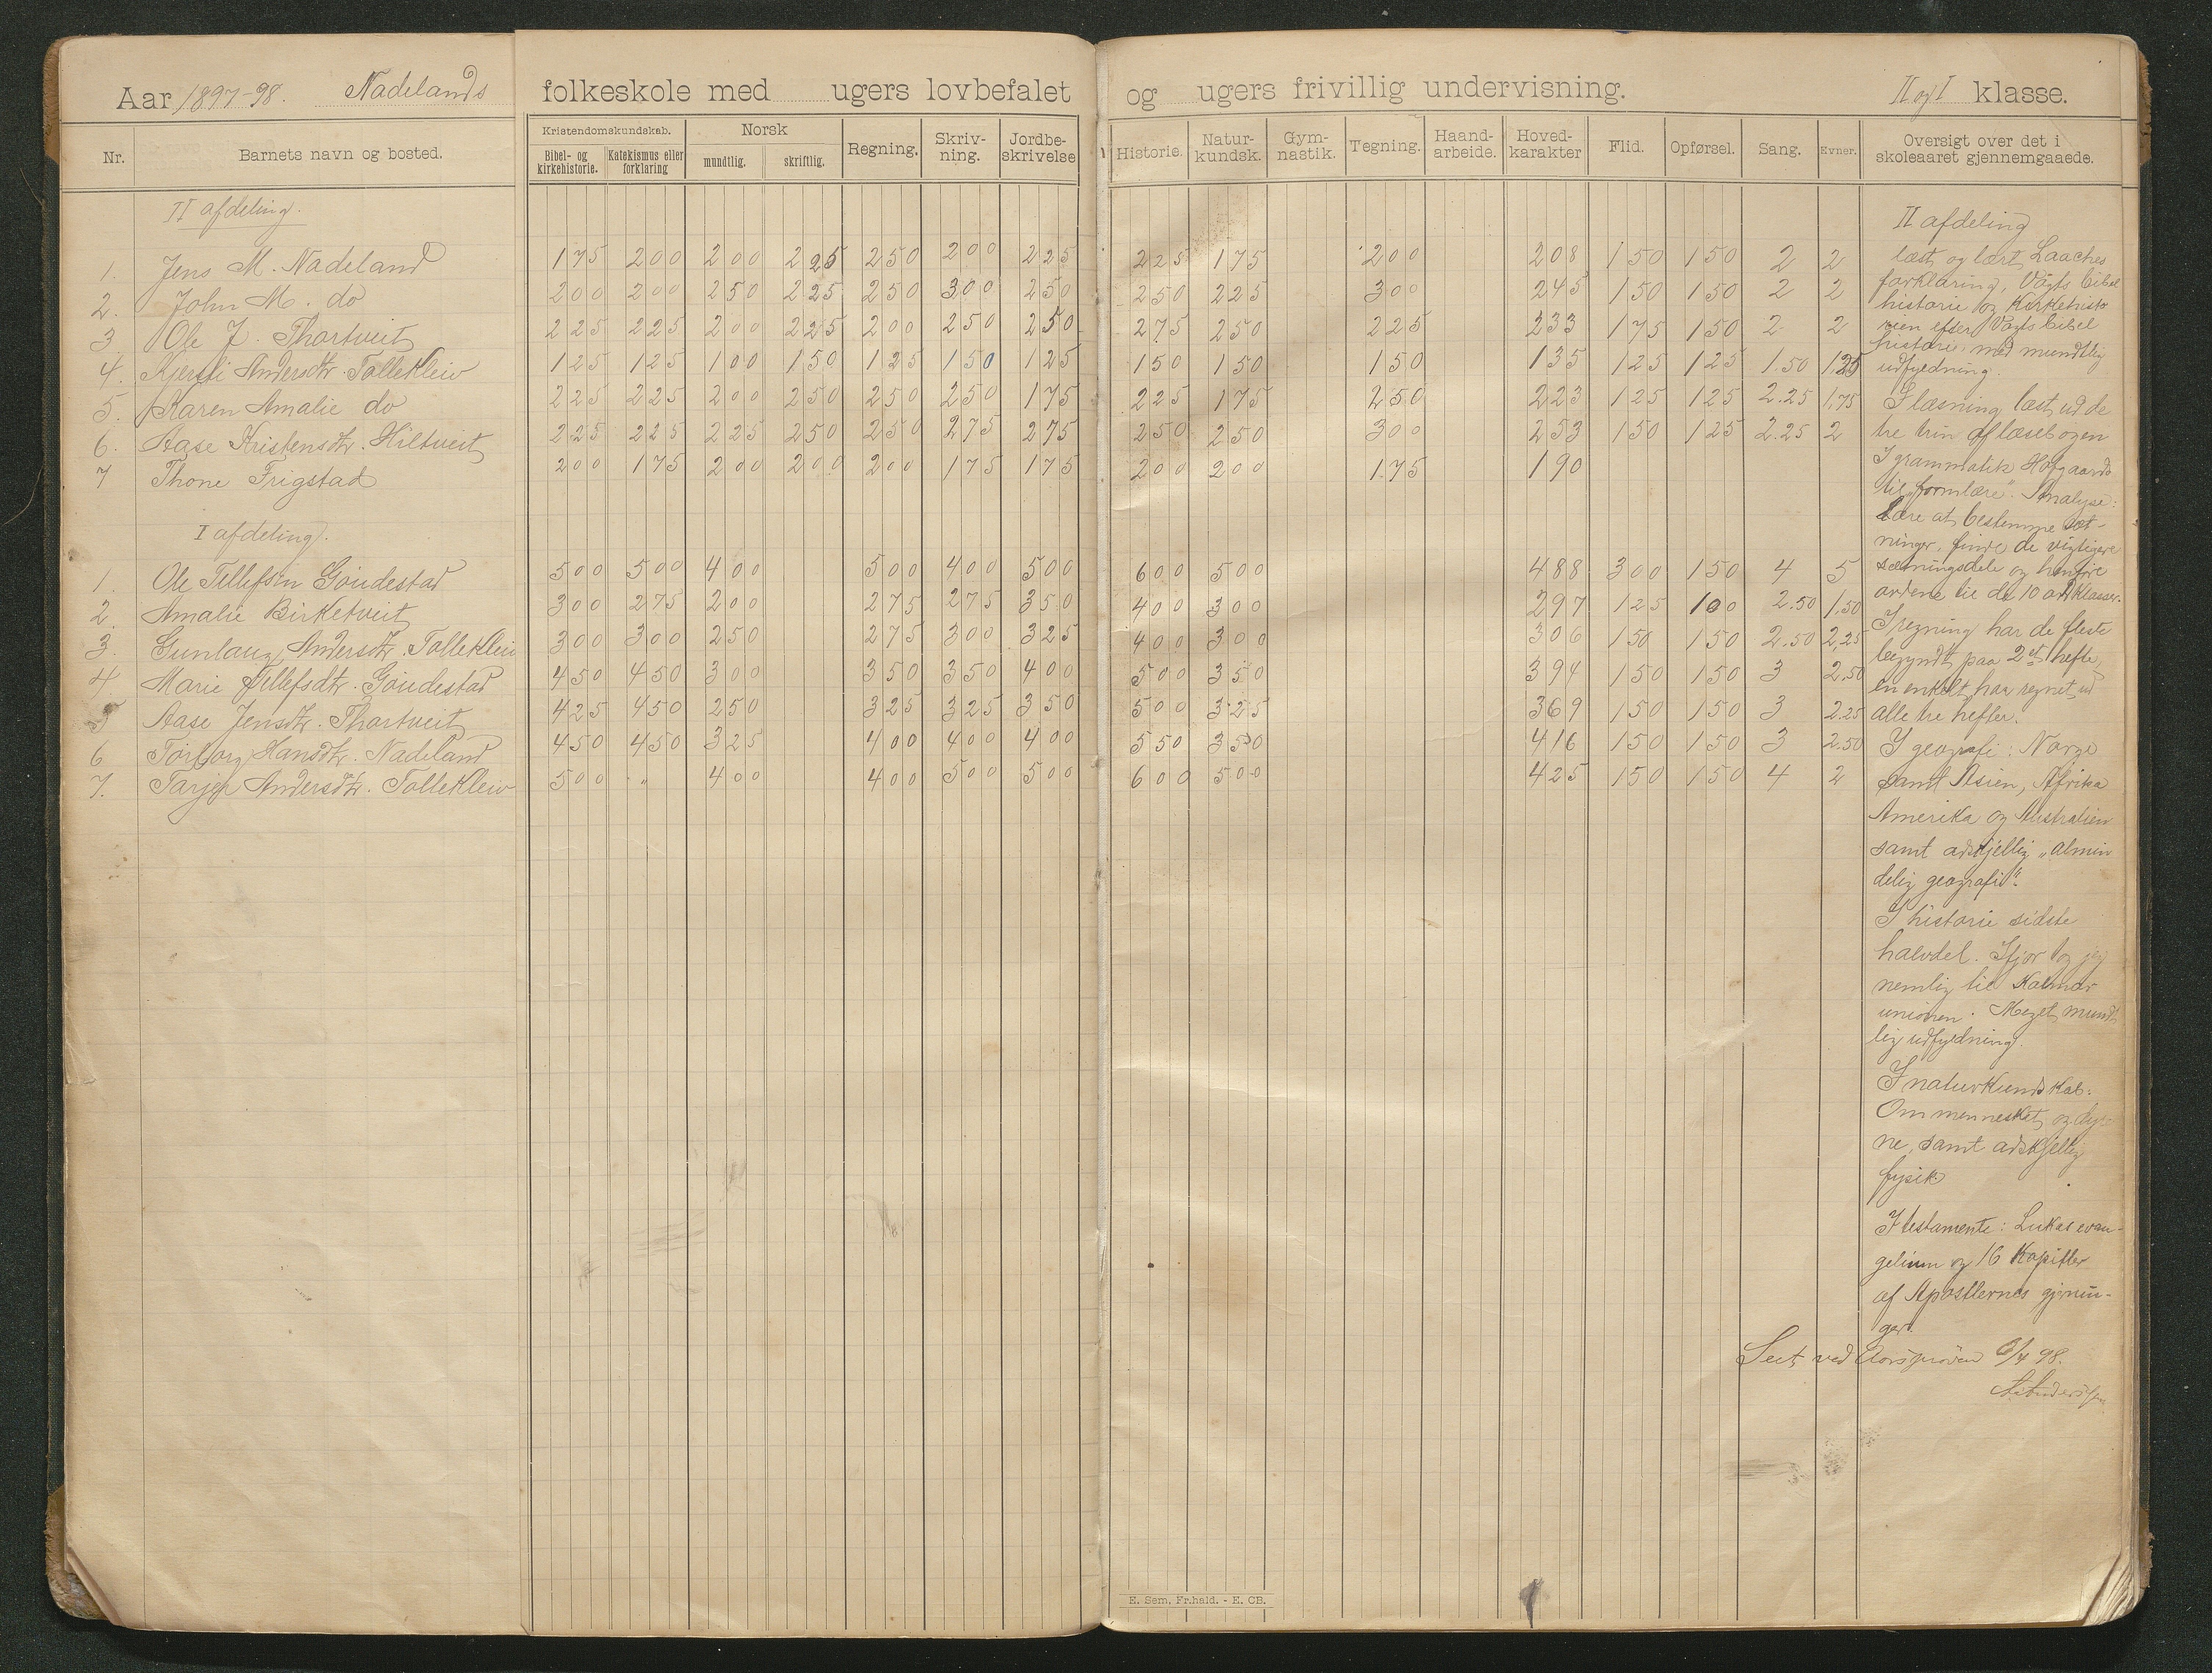 Aar 1897-98. Nadelands folkeskole med ugers lovbefalet og ugers frivillig undervisning. II og I klasse.
Nr. Barnets navn og bosted. Kristendomskundskab. Bibel- og kirkehistorie. Katekismus eller forklaring Norsk mundtlig. skriftlig. Regning. Skriv-ning. Jordbe-skrivelse Historie. Natur-kundsk. Gym-nastik. Tegning. Haand-arbeide. Hoved-karakter Flid. Opførsel. Sang. Evner. Oversigt over det i skoleaaret gjennemgaaede.
II afdeling.
1. Jens M. Nadeland 175 200 200 225 250 200 225 225 175 200 208 150 150 2 2
2. John M. do 200 200 250 225 250 300 250 250 225 300 245 150 150 2 2
3 Ole J. Thortveit 225 225 200 225 200 250 250 275 250 225 233 175 150 2 2
4. Kjersti Andersdtr. Tollekleiv 125 125 100 150 125 150 125 150 150 150 135 125 125 1.50 1.25
5. Karen Amalie do 225 225 200 250 250 250 175 225 175 250 223 125 125 2.25 1.75
6. Aase Kristensdtr. Hiltveit 225 225 225 250 250 275 275 250 250 300 253 150 125 2.25 2
7 Thone Frigstad 200 175 200 200 200 175 175 200 200 175 190
I afdeling.
1. Ole Tellefsen Goudestad 500 500 400 500 400 500 600 500 488 300 150 4 5
2. Amalie Birketveit 300 275 200 275 275 350 400 300 297 125 100 2.50 1.50
3. Gunlaug Andersdtr. Tollekleiv 300 300 250 275 300 325 400 300 306 150 150 2.50 2.25
4 Marie Tellefsdtr. Goudestad 450 450 300 350 350 400 500 350 394 150 150 3 2.50
5 Aase Jensdtr. Thortveit 425 450 250 325 325 350 500 325 369 150 150 3 2.25
6 Torborg Hansdtr. Nadeland 450 450 325 400 400 400 550 350 416 150 150 3 2.50
7. Tarjer Andersdtr. Tollekleiv 500 " 400 400 500 500 600 500 425 150 150 4 2
II afdeling
læst og lært Laaches
forklaring, Vogts bibel
historie og Kirkehisto
rien efter Vogts bibel
historie, med mundtlig
udfyldning.
I læsning læst ud de
tre trin af læsebogen
I grammatik Hofgaards
til "formlære". Analyse:
Lære at bestemme sæt-
ninger, finde de vigtigere
sætningsdele og henføre
ordene til de 10 ordklasser.
I regning har de fleste
begyndt paa 2et hefte,
en enkelt har regnet ud
alle tre hefter.
I geografi: Norge
samt Asien, Afrika
Amerika og Australien
samt adskjellig "almin
delig geografi".
I historie sidste
halvdel. Ifjor tog jeg
nemlig til Kalmar
unionen. Meget mundt
lig udfyldning.
I naturkundskab:
Om mennesket og dyre
ne, samt adskjellig
fysik
I testamente: Lukas evan-
gelium og 16 Kapitler
af Apostlernes gjernin-
ger.
Seet ved Aarsprøven /4 98.
E. Sem, Fr.hald. - E. CB.